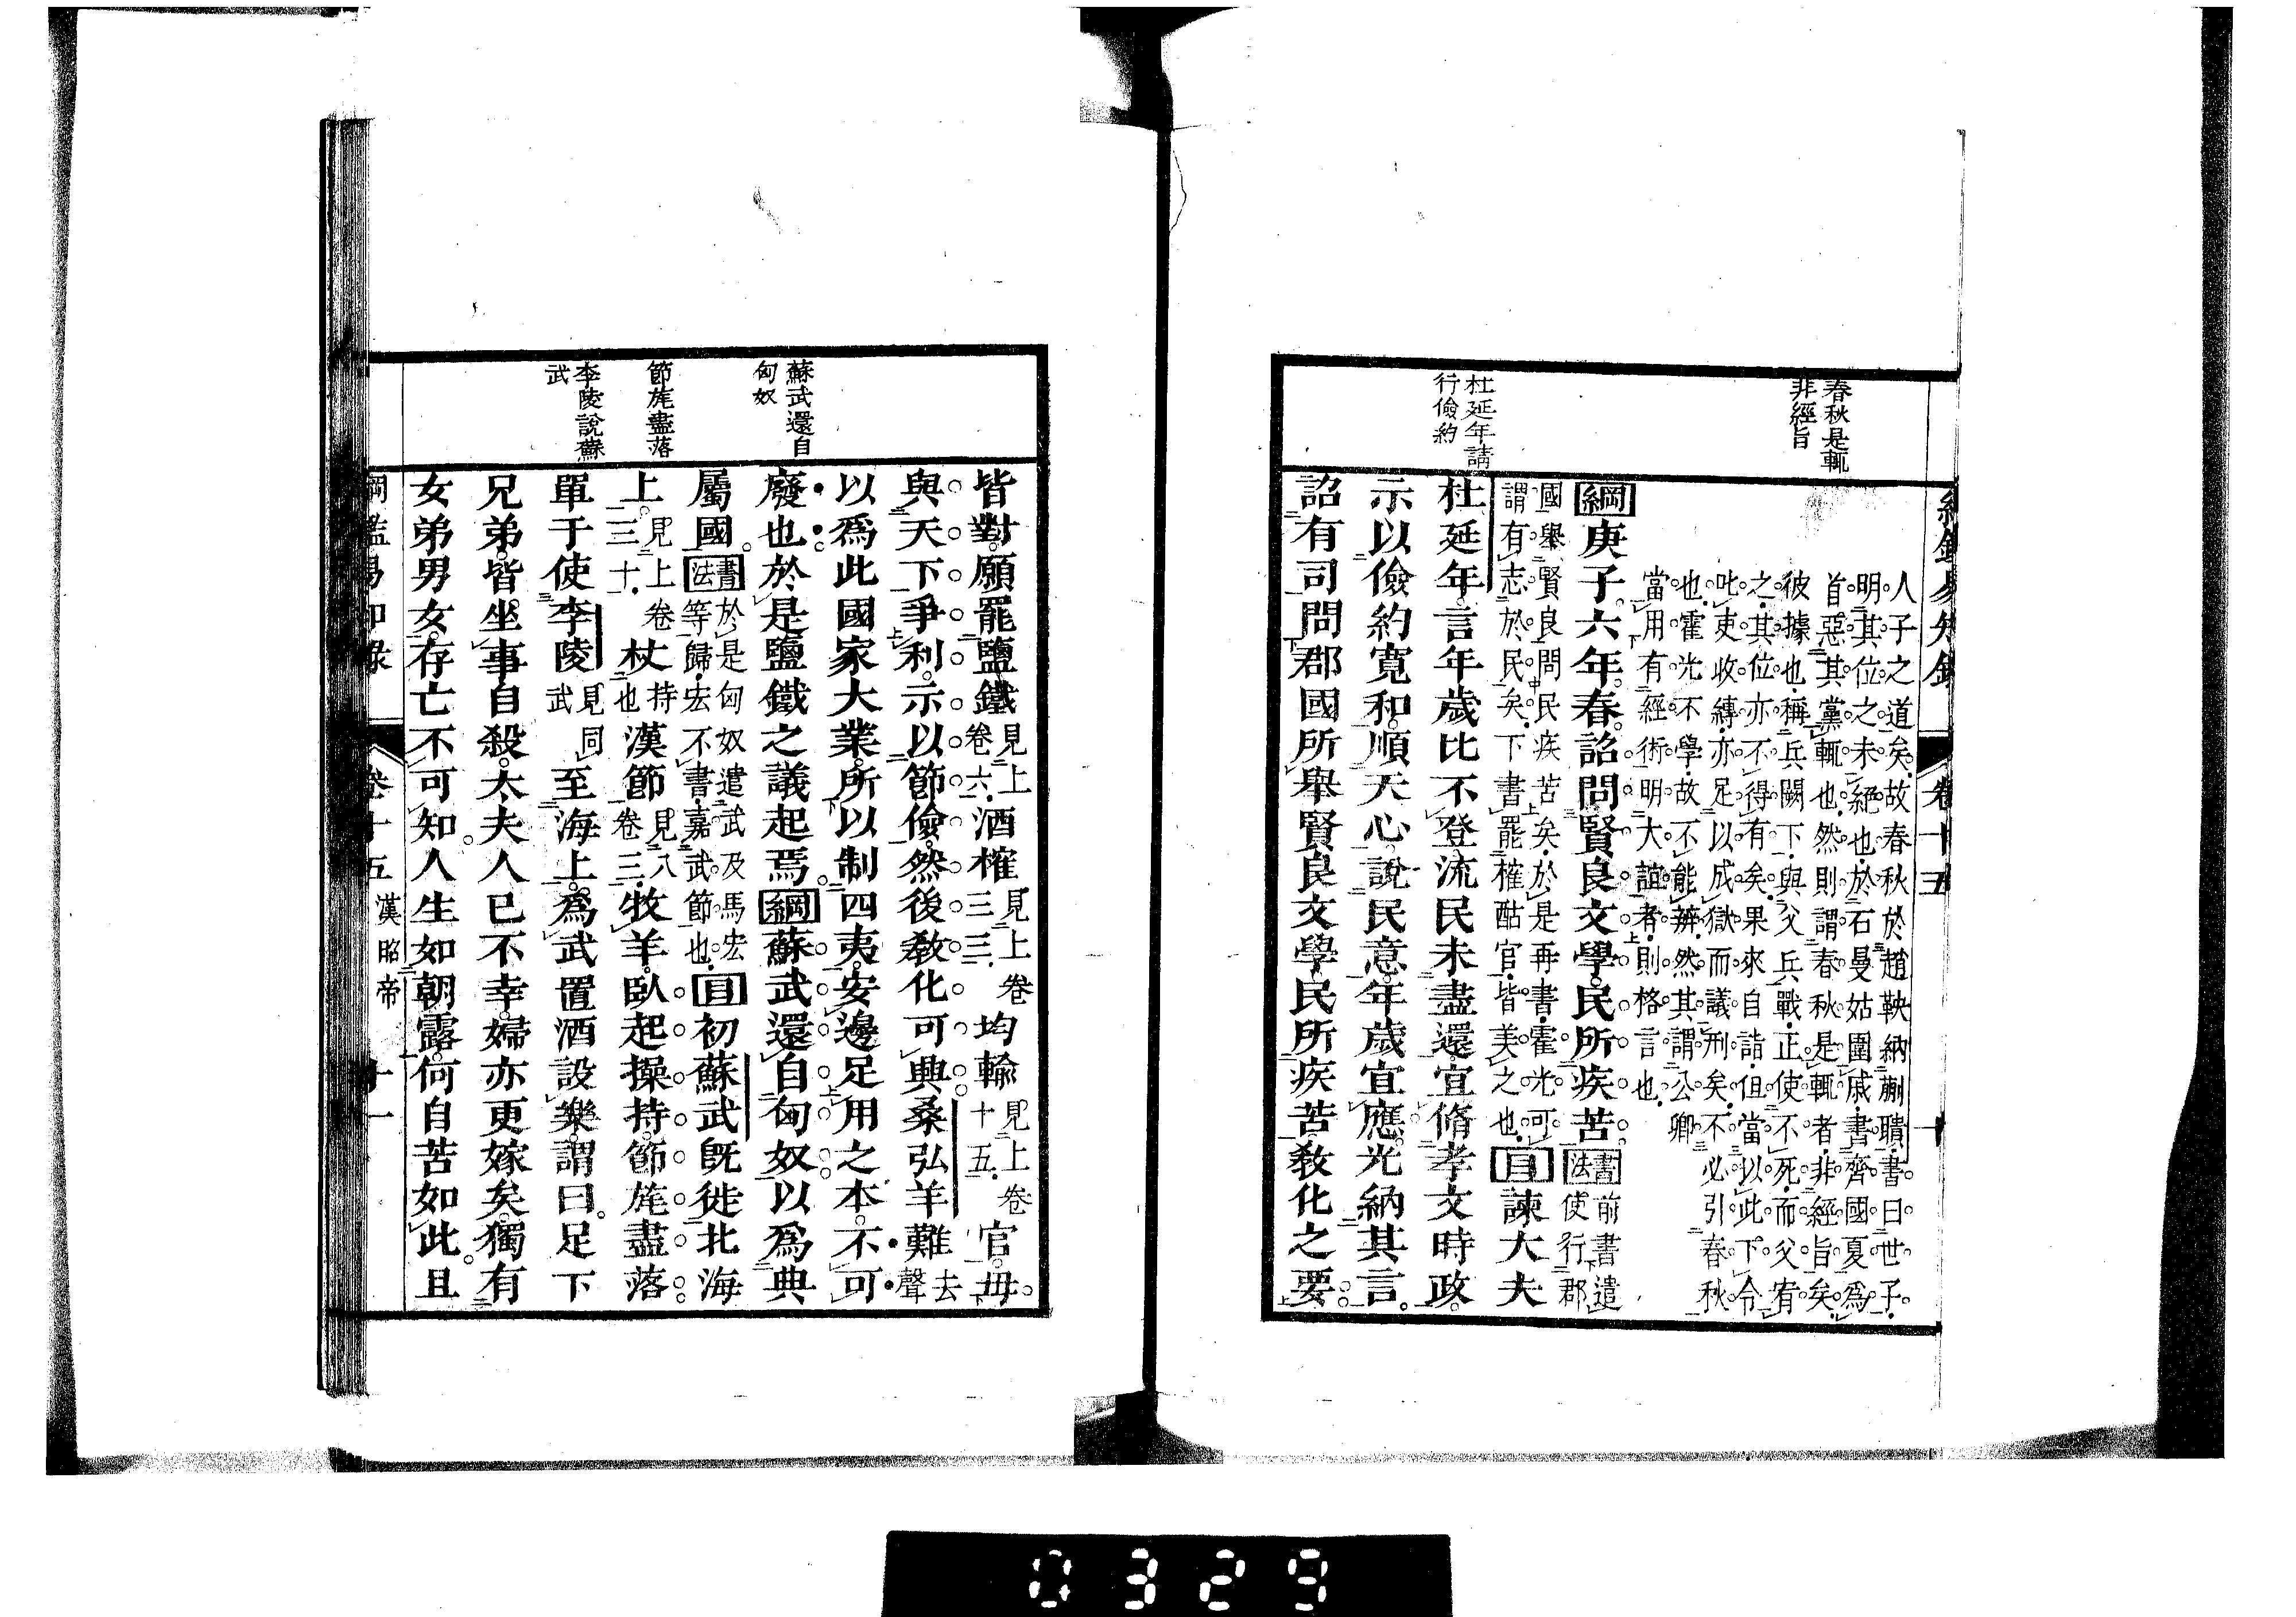 春秋是輒
非經旨
杜延年請
行儉約
卷十五
人子之道矣故春秋於趙鞅納蒯聵書曰世子
明其位之未絕也於石曼姑圍戚書齊國夏為
首惡其黨輒也然則謂春秋是輒者非經旨矣
彼據也稱兵闕下與父兵戰正使不死而父宥
之其位亦不得有矣果來自詣但當以此下令
叱吏收縛亦足以成獄而議刑矣不必引春秋
也霍光不學故不能辨然其謂公卿
當用有經術明大誼者則格言也
綱庚子六年春詔問賢良文學民所疾苦書法前書遣使行郡
國舉賢良問民疾苦矣於是再書霍光可
謂有志於民矣下書罷榷酤官皆美之也目諫大夫
杜延年言年歲比不登流民未盡還宜脩孝文時政
示以儉約寬和順天心說民意年歲宜應光納其言
詔有司問郡國所舉賢良文學民所疾苦敎化之要
蘇武還自
匈奴
節旄盡落
李陵說蘇
武
皆對願罷鹽鐵見上卷六酒榷見上卷三三均輸見上卷十五官毋
與天下爭利示以節儉然後敎化可興桑弘羊難去聲
以爲此國家大業所以制四夷安邊足用之本不可
廢也於是鹽鐵之議起焉綱蘇武還自匈奴以爲典
屬國書法於是匈奴遣武及馬宏等歸宏不書嘉武節也目初蘇武旣徙北海
上見上卷三十杖持也漢節見八卷三牧羊臥起操持節旄盡落
單于使李陵見同武至海上爲武置酒設樂謂曰足下
兄弟皆坐事自殺太夫人已不幸婦亦更嫁矣獨有
女弟男女存亡不可知人生如朝露何自苦如此且
綱鑑易知錄 卷十五 漢昭帝 十一
0329